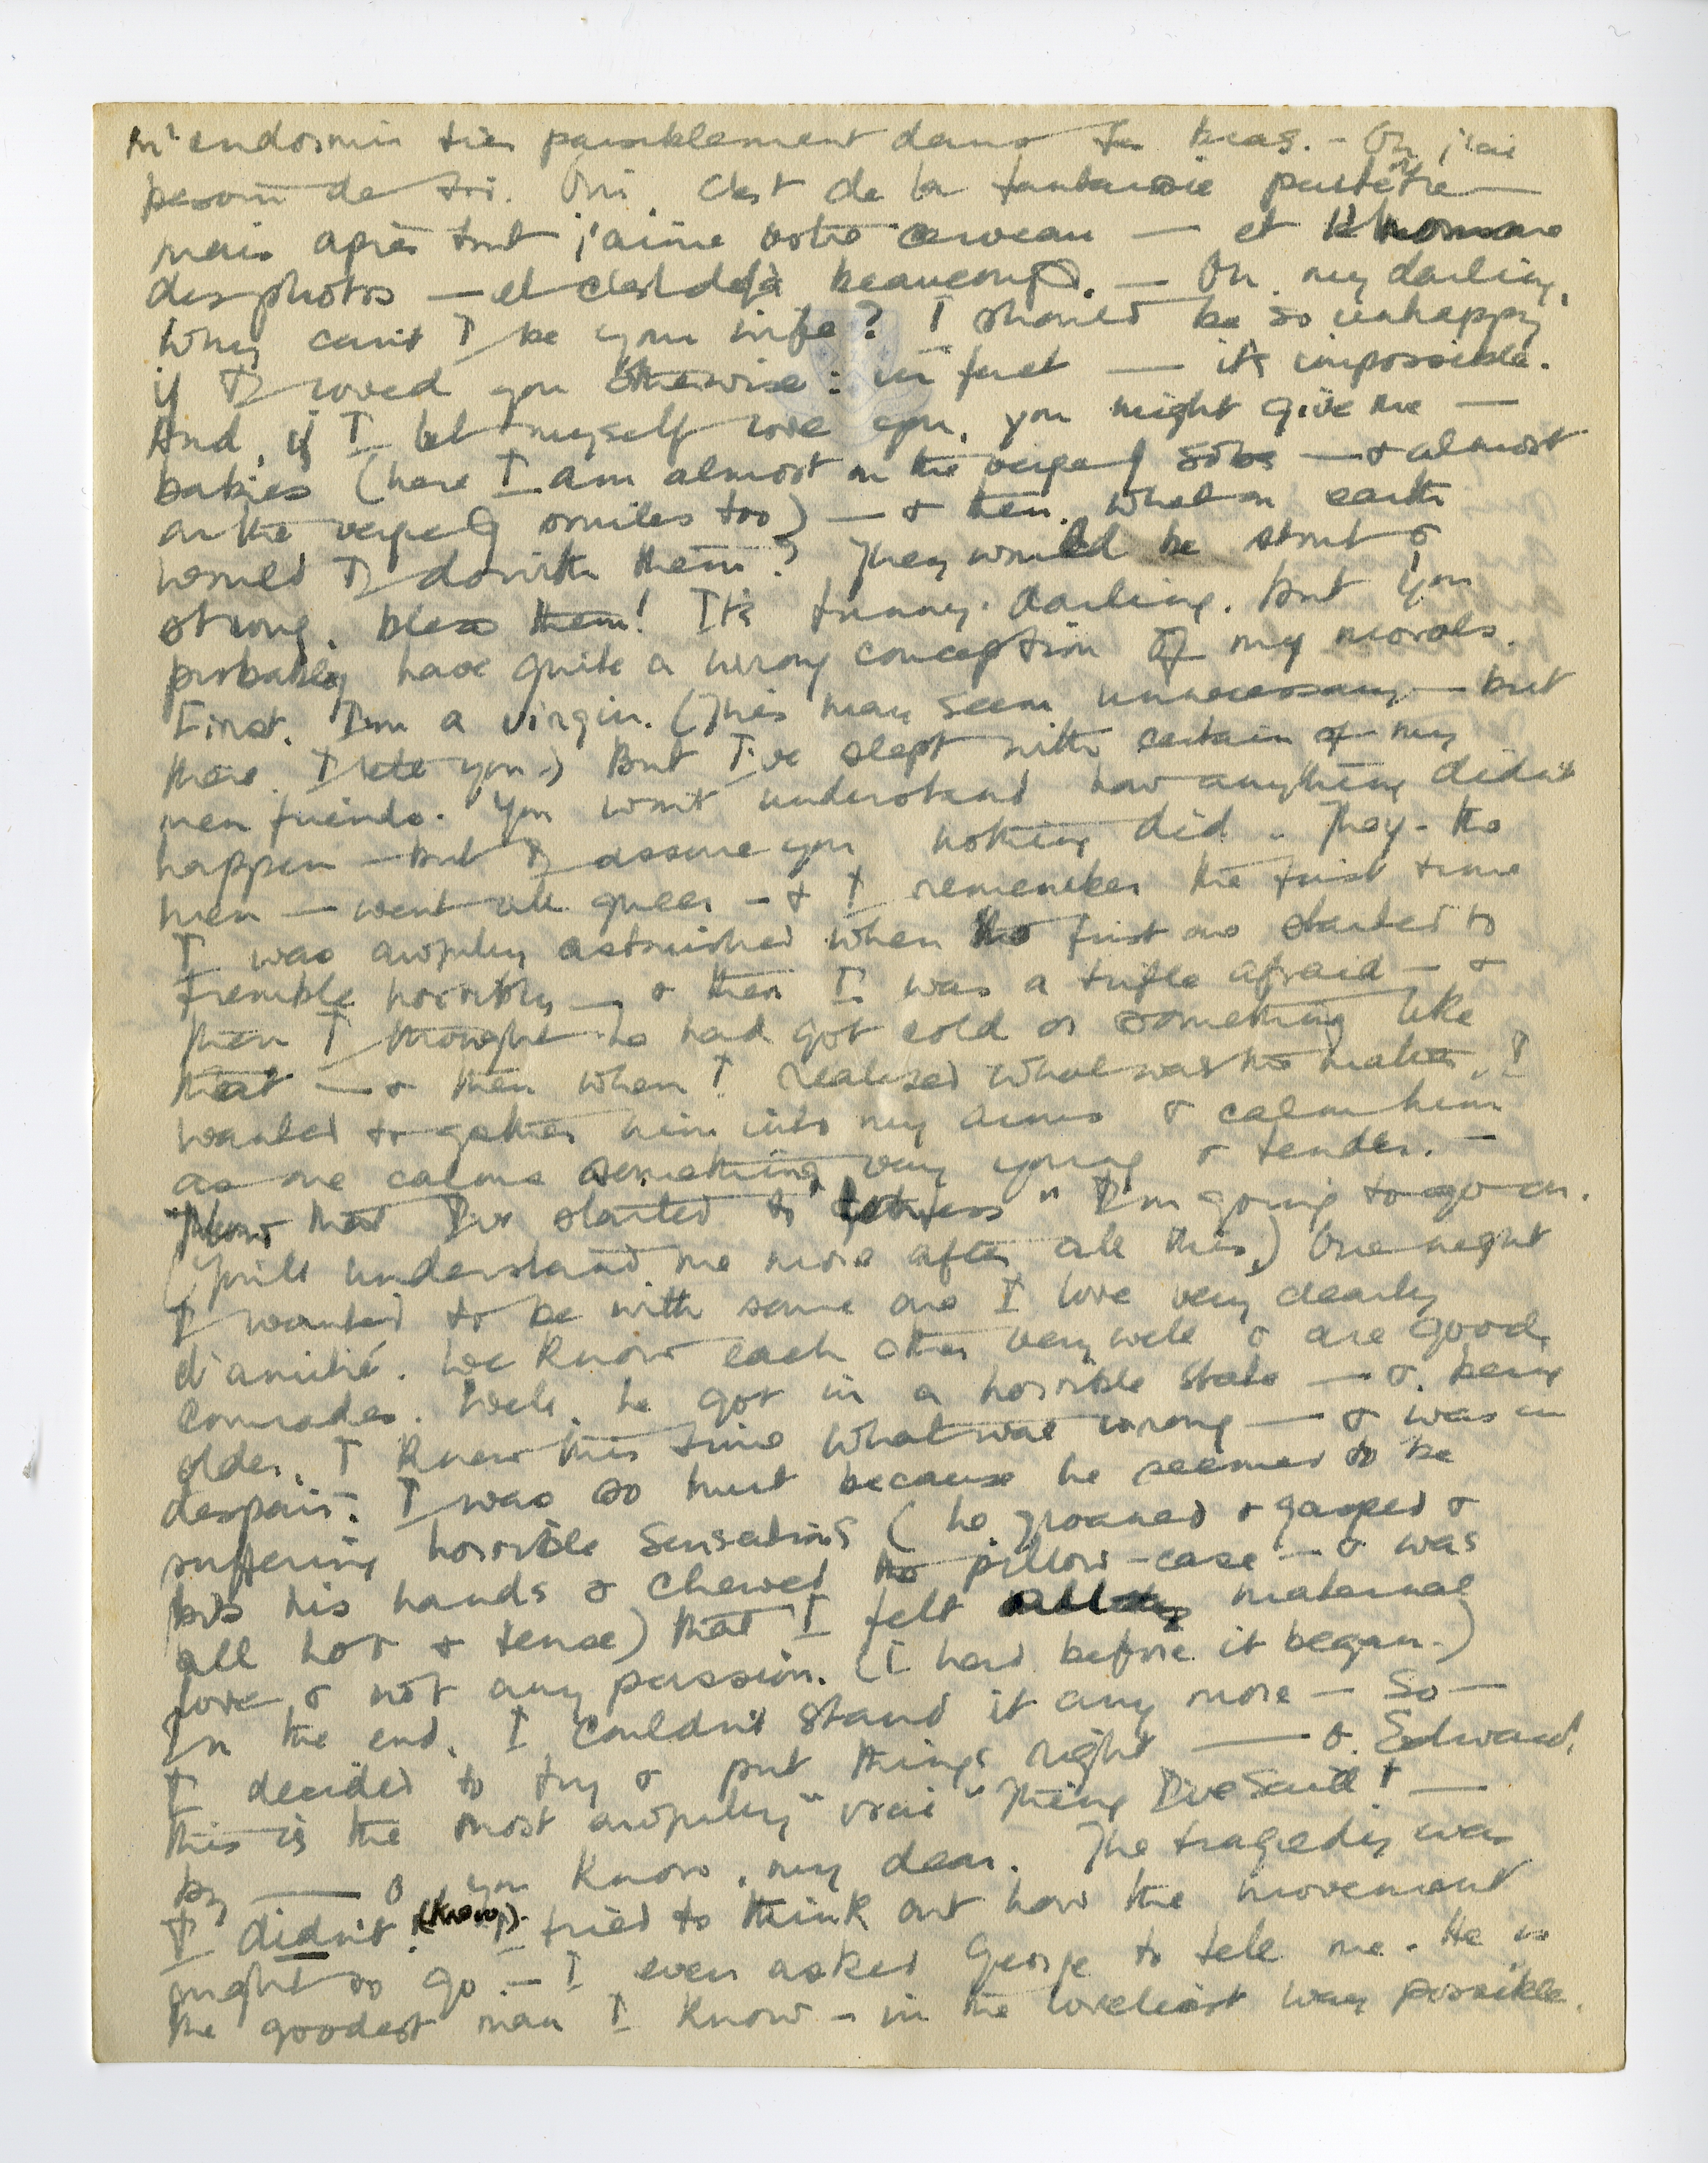 m'endormir très paisiblement dans tes bras. - Oh, j'ai
besoin de toi. Oui, c'est de la fantaisie peutêtre —
mais après tout j'aime votre cerveau — et l'homme
des photos — et c'est déjà beaucoup. — Oh, my darling,
Why can't I be your wife? I should be so unhappy
if I loved you otherwise: in fact — it's impossible.
And, if I let myself love you, you might give me —
babies (here I am almost on the verge of sobs — & almost
on the verge of smiles too) — & then, what on earth
would I do with them? They would be stout &
strong, bless them! It's funny, darling, but you
probably have quite a wrong conception of my morals.
First, I'm a virgin. (This may seem unnecessary — but
there, I tell you.) But I've slept with certain of my
men friends. You won't understand how anything didn't
happen — but I assure you nothing did. They - the
men — went all queer — & I remember the first time
I was awfully astonished when the first one started to
tremble horribly — & then I was a trifle afraid — &
then I thought he had got cold or something like
that — & then when I realised what was the matter, I
wanted to gather him into my arms & calm him
as one calms something very young & tender. —
Now that I've started to "confess" I'm going to go on.
(You'll understand me more after all this.) One night
I wanted to be with some one I love very dearly
d'amitié. We know each other very well & are good
comrades. Well, he got in a horrible state — &, being
older, I knew this time what was wrong — & was in
despair. I was so hurt because he seemed to be
suffering horrible sensations (he groaned & gasped &
bit his hands & chewed the pillow-case — & was
all hot & tense) that I felt maternal
love & not any passion. (I had before it began.)
In the end, I couldn't stand it any more — So —
I decided to try & put things right — &, Edward,
this is the most awfully "vrai" thing I've said! —
by — o, you know, my dear. The tragedy was
I didn't (know). I tried to think out how the movement
ought to go — I even asked George to tell me. He is
the goodest man I know — in the loveliest way possible.